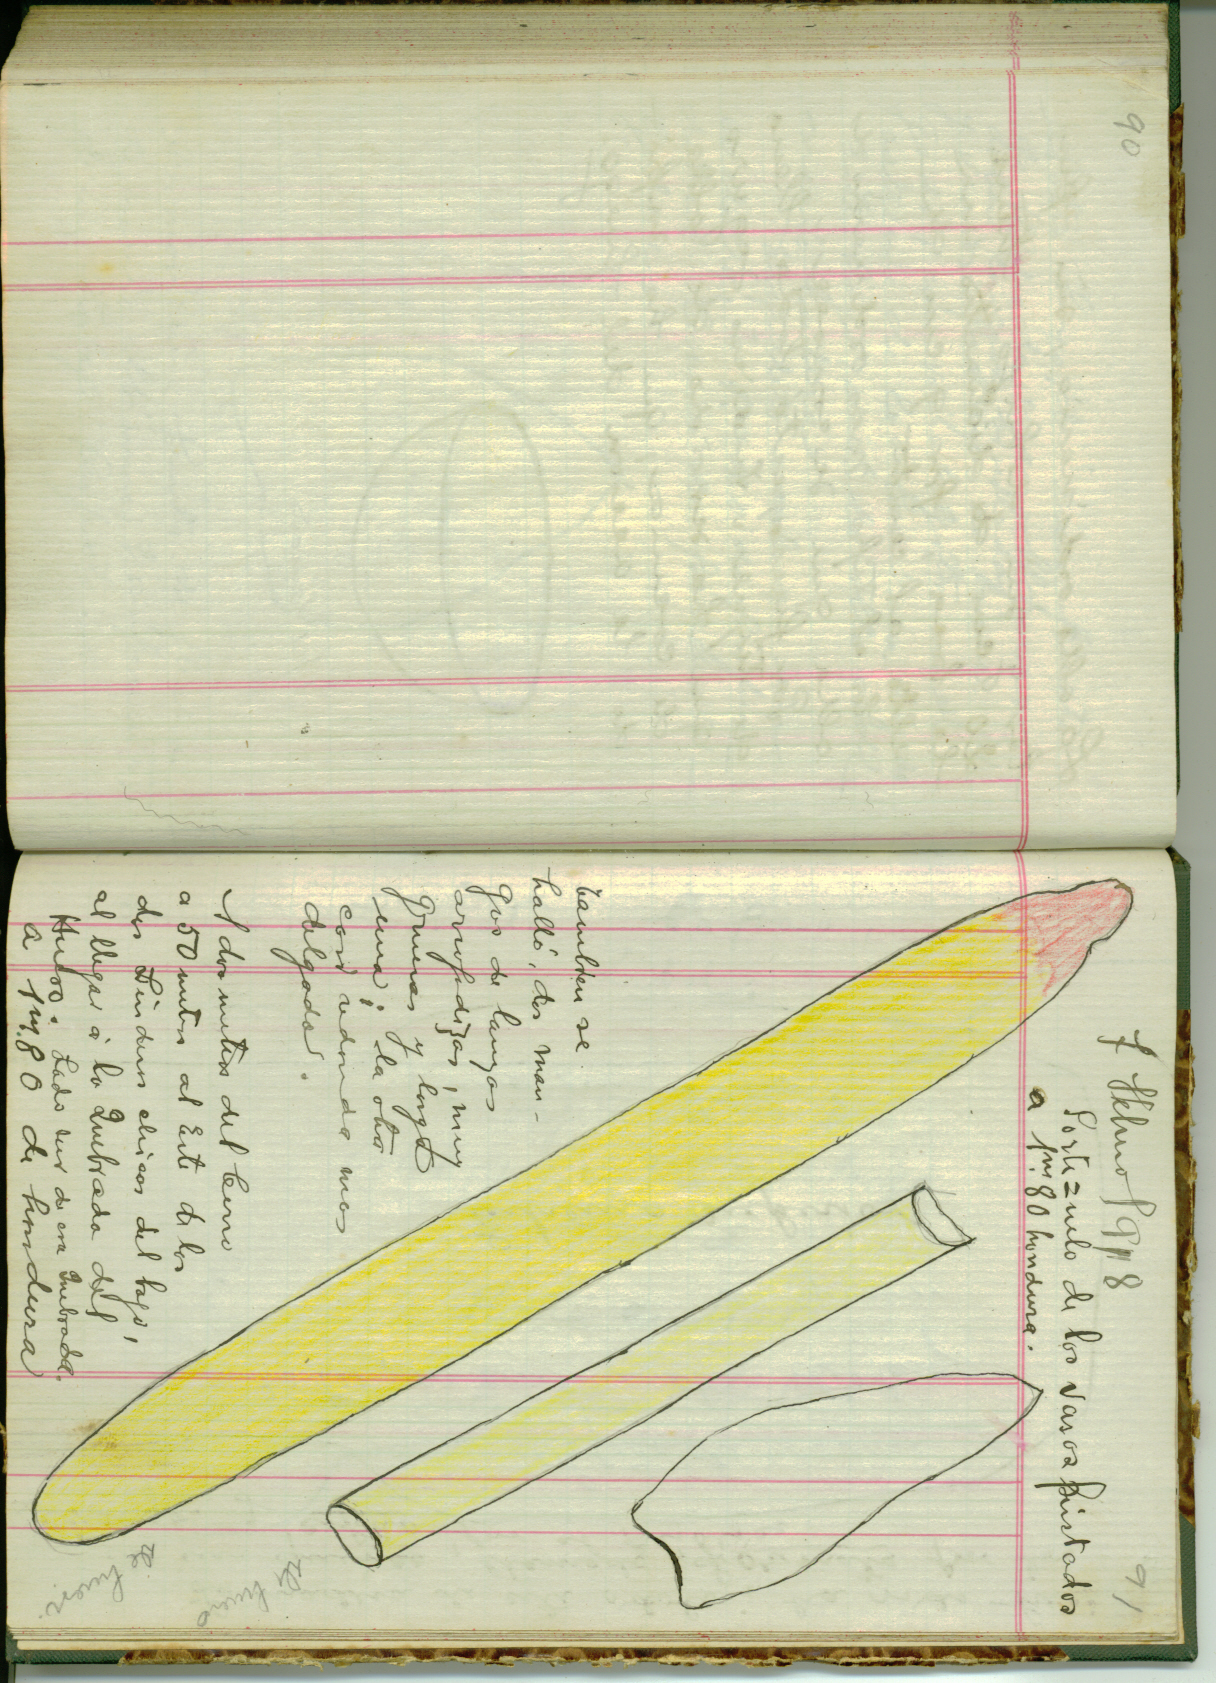 90
91
f Hebrero 9 918
Portezuelo de los vasos pintados
a 1m.80 hondura.
tambien se
halló, dos man-
gos de lanzas
arrojadizas, muy
gruesas y larga
una; la otra
casi redonda mas
delgada.
A dos metros del Cerro
a 50 metros al Este de los
dos Linduros chicos del bajo,
al llegar á la Quebrada del
Huzo: Lado sur de esa Quebrada.
a 1m.80 de hondura
De hueso
De hueso